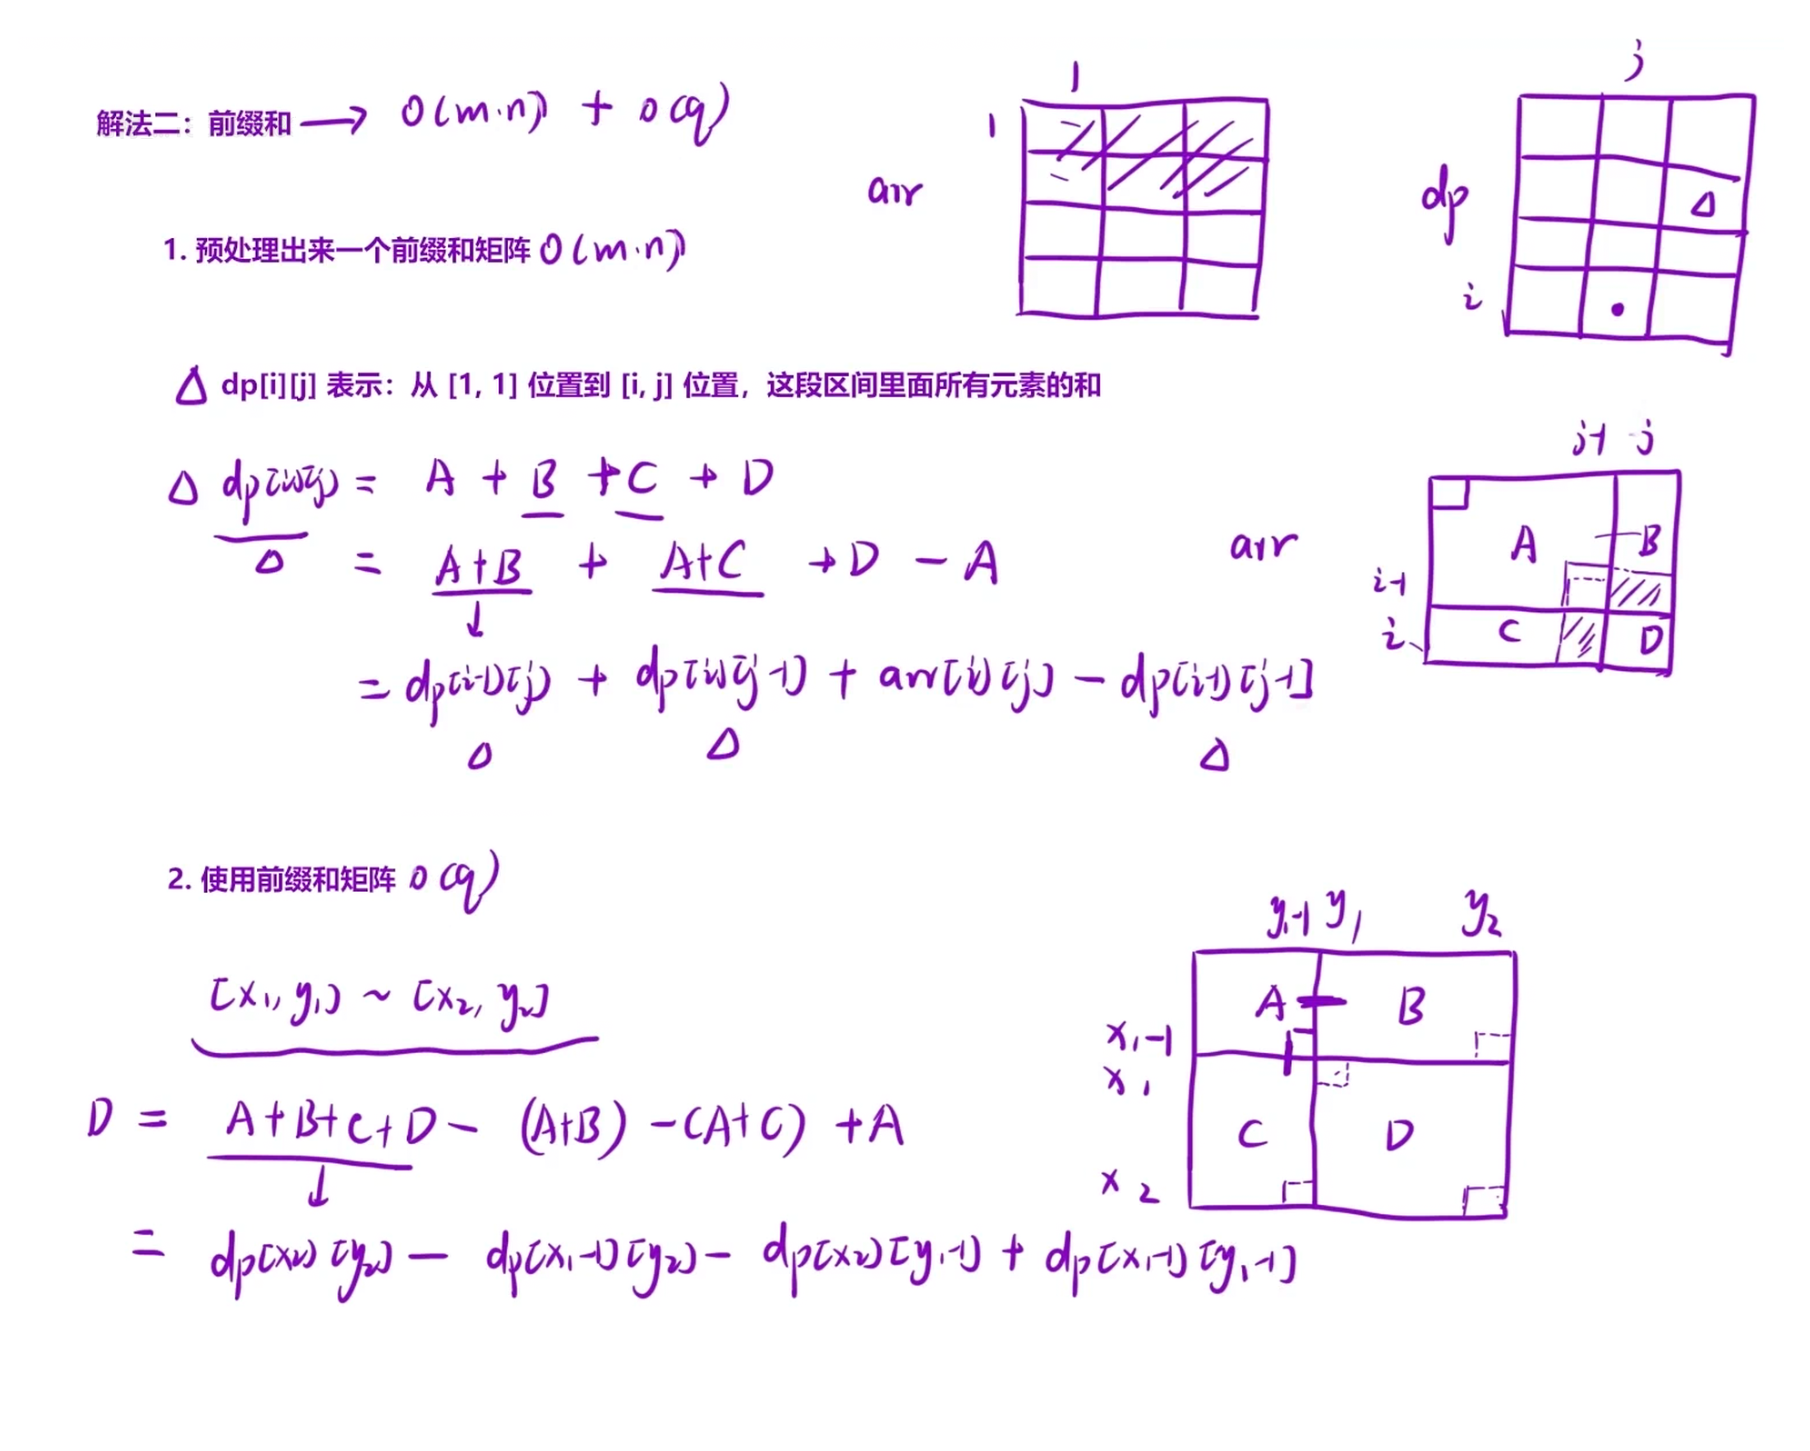 解法二：前缀和 → O(m·n) + O(q)
1
1
arr
j
dp
Δ
i
1. 预处理出来一个前缀和矩阵 O(m·n)
Δ dp[i][j] 表示：从 [1, 1] 位置到 [i, j] 位置，这段区间里面所有元素的和
Δ dp[i][j] = A + B + C + D
Δ = A+B + A+C + D - A
= dp[i-1][j] + dp[i][j-1] + arr[i][j] - dp[i-1][j-1]
Δ Δ Δ
j-1 j
arr
A B
i-1
i
C D
2. 使用前缀和矩阵 O(q)
[x1, y1] ~ [x2, y2]
D = A+B+C+D - (A+B) - (A+C) + A
= dp[x2][y2] - dp[x1-1][y2] - dp[x2][y1-1] + dp[x1-1][y1-1]
y1-1 y1 y2
A B
x1-1
x1
C D
x2